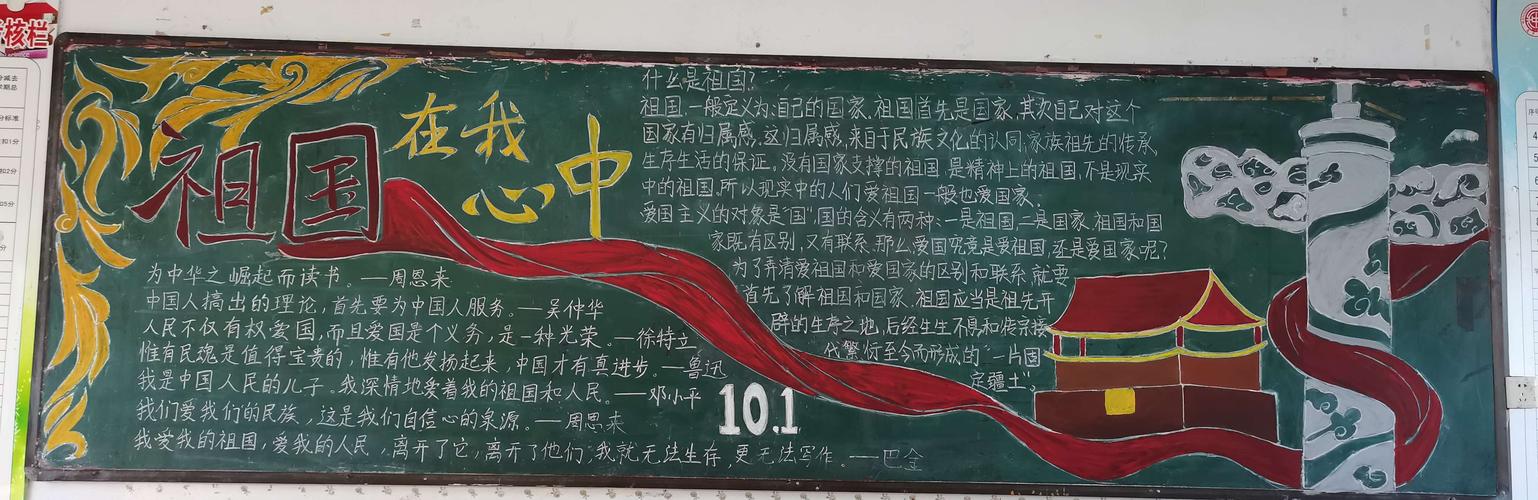 核栏
祖国
在我
心中
什么是祖国?
祖国,一般定义为:自己的国家,祖国首先是国家,其次自己对这个
国家有归属感,这归属感,来自于民族文化的认同,家族祖先的传承,
生存生活的保证。没有国家支撑的祖国,是精神上的祖国,不是现实
中的祖国,所以现实中的人们爱祖国一般也爱国家;
爱国主义的对象是"国",国的含义有两种:一是祖国,二是国家,祖国和国
家既有区别,又有联系,那么爱国究竟是爱祖国,还是爱国家呢?
为了弄清爱祖国和爱国家的区别和联系,就要
首先了解祖国和国家,祖国应当是祖先开
辟的生存之地,后经生生不息和传宗接
代繁衍至今而形成的"一片固
定疆土"。
为中华之崛起而读书。——周恩来
中国人搞出的理论,首先要为中国人服务。——吴仲华
人民不仅有权爱国,而且爱国是个义务,是一种光荣。——徐特立
惟有民魂是值得宝贵的,惟有他发扬起来,中国才有真进步。——鲁迅
我是中国人民的儿子。我深情地爱着我的祖国和人民。——邓小平
我们爱我们的民族,这是我们自信心的泉源。——周恩来
我爱我的祖国,爱我的人民,离开了它,离开了他们,我就无法生存,更无法写作。——巴金
10.1